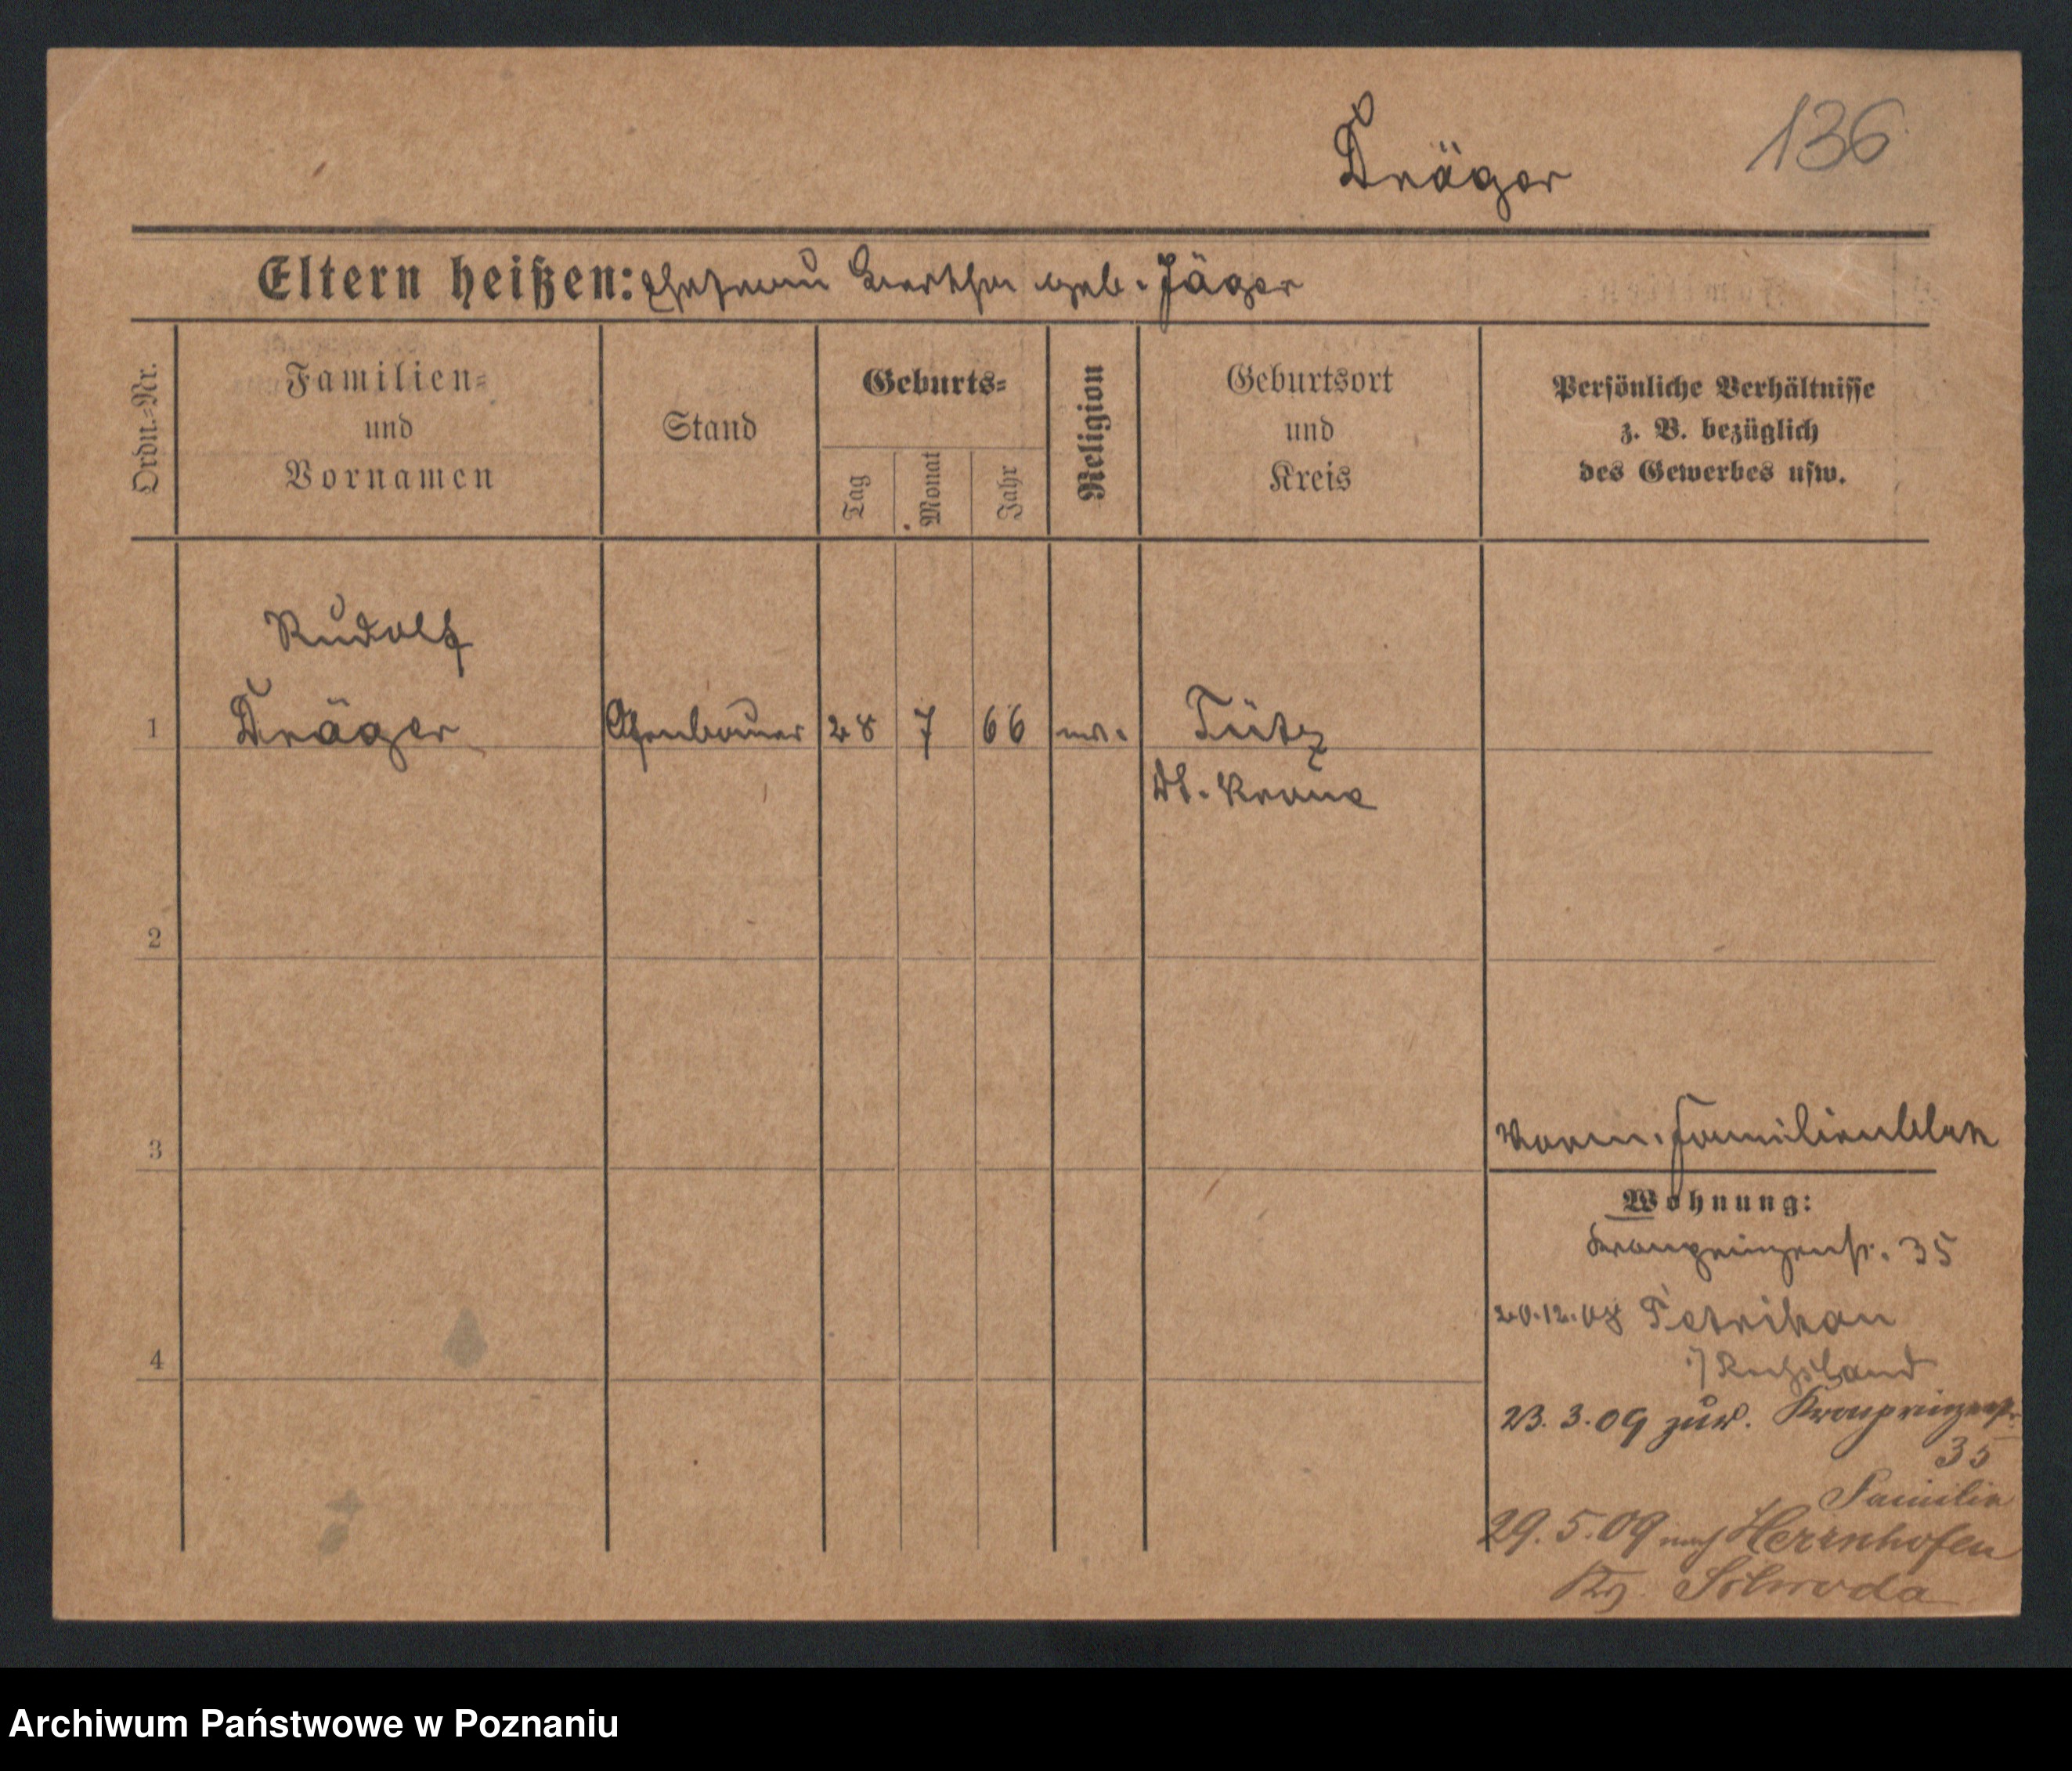 136
Dräger
Eltern heißen: Ehefrau Bertha geb. Jäger
Ordn.=Nr.
Familien=
und
Vornamen
Stand
Geburts=
Tag
Monat
Jahr
Religion
Geburtsort
und
Kreis
Persönliche Verhältnisse
z. B. bezüglich
des Gewerbes usw.
Rudolf
1 Dräger Ofenbauer 28 7 66 ev. Tütz
Dt. Krone
2
3
Familienblatt
Wohnung:
Kronprinzenstr. 35
20.12.08 Petrikau
i/ Rußland
4
23.3.09 zur. Kronprinzenstr.
35
Familie
29.5.09 nach Herrnhofen
Krs. Schroda
Archiwum Państwowe w Poznaniu